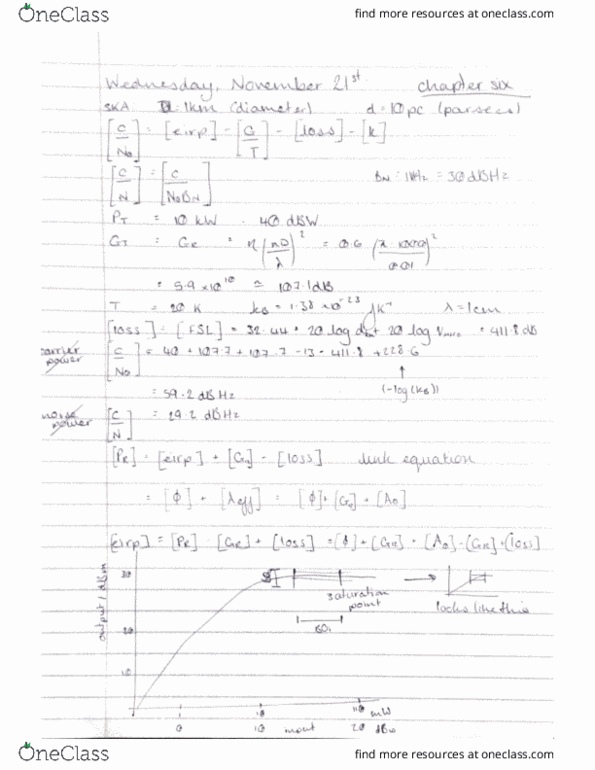 OneClass
find more resources at oneclass.com
Wednesday, November 21st chapter six
SKA D: 1km (diameter) d = 10pc (parsecs)
[C/N₀] = [eirp] - [G/T] - [loss] - [k]
[C/N] = [C/N₀B_N] B_N = 1kHz = 30 dBHz
P_T = 10 kW = 40 dBW
G_T = G_R = η(πD/λ)² = 0.6 (π · 1000/0.01)²
= 5.9 × 10¹⁰ ≃ 107.7dB
T = 20 K k_B = 1.38 × 10⁻²³ JK⁻¹ λ = 1cm
[loss] = [FSL] = 32.44 + 20 log d + 20 log = 411.8 dB
carrier power [C/N₀] = 40 + 107.7 + 107.7 - 13 - 411.8 + 228.6
(-log(k_B))
= 59.2 dBHz
noise power [C/N] = 29.2 dBHz
[P_R] = [eirp] + [G_R] - [loss] link equation
= [ϕ] + [A_eff] = [ϕ] + [G_R] + [A₀]
[eirp] = [P_R] - [G_R] + [loss] = [ϕ] + [G_R] + [A₀] - [G_R] + [loss]
output / dBm
30
20
10
saturation point
looks like this
0 10 20 dBW
mW
OneClass
find more resources at oneclass.com